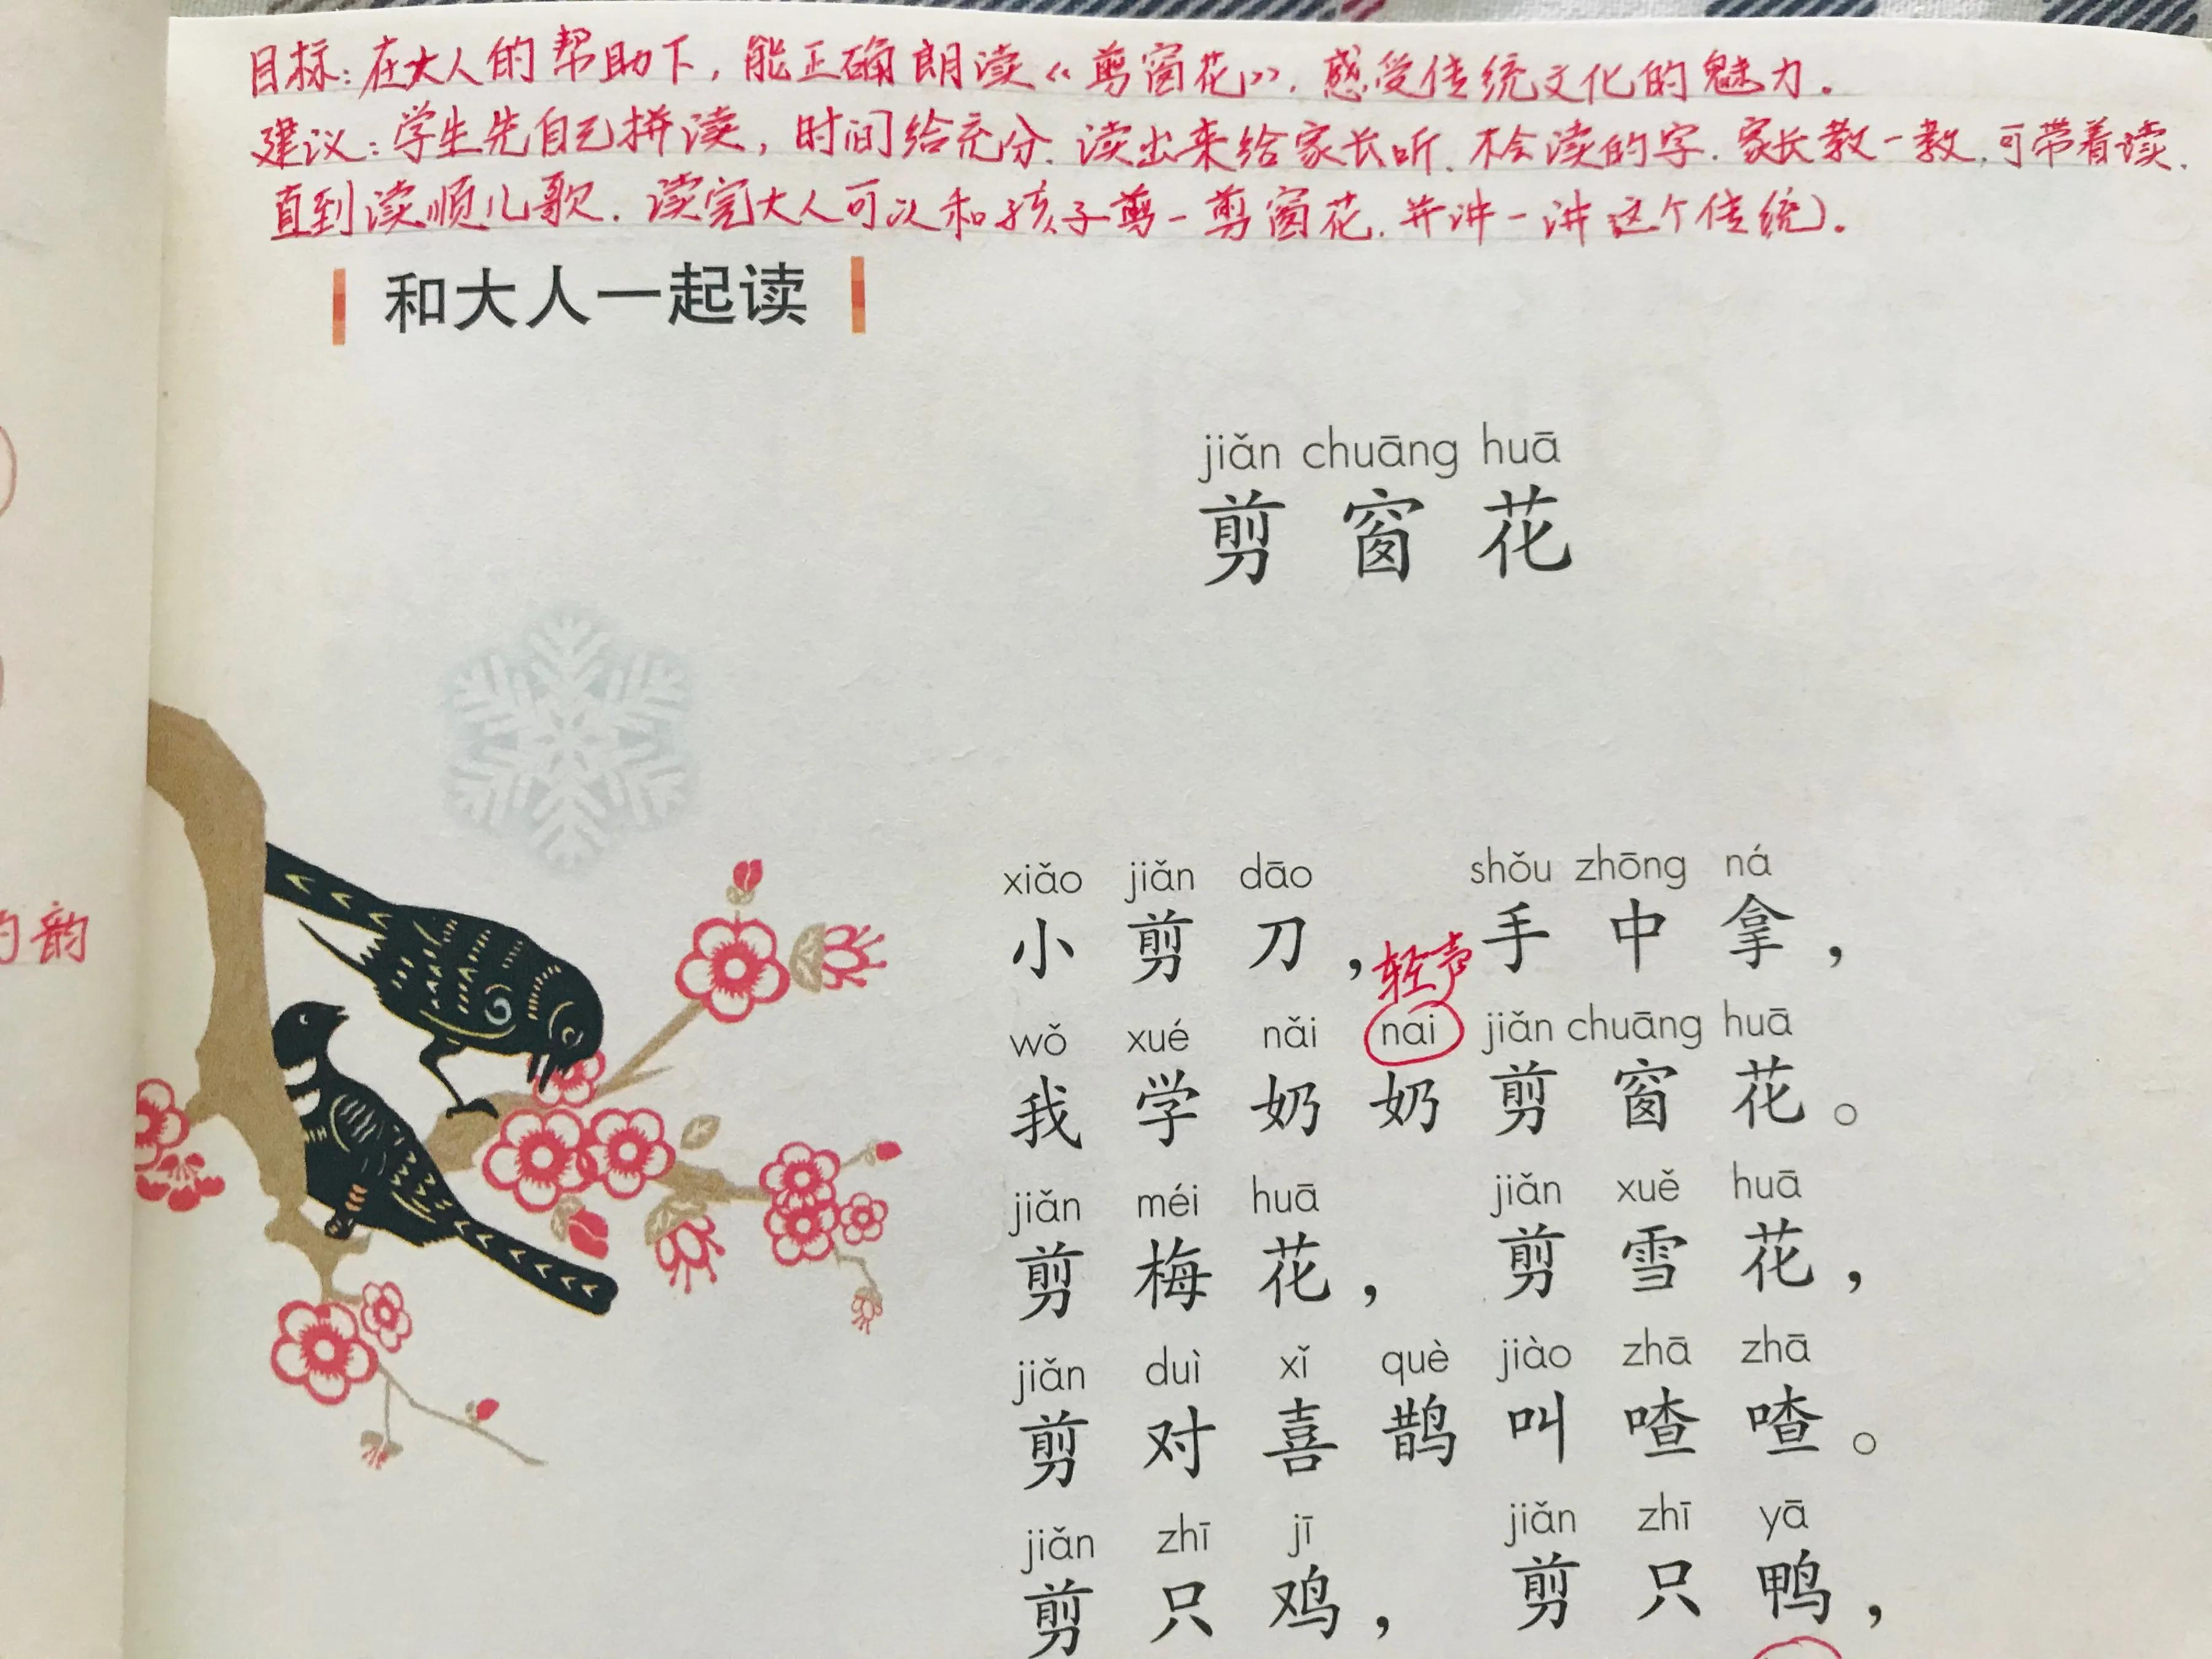 目标：在大人的帮助下，能正确朗读《剪窗花》，感受传统文化的魅力。
建议：学生先自己拼读，时间给充分，读出来给家长听，不会读的字，家长教一教，可带着读，
直到读顺儿歌，读完大人可以和孩子剪一剪窗花，并讲一讲这个传统）。
和大人一起读
jiǎn chuāng huā
剪窗花
xiǎo jiǎn dāo shǒu zhōng ná
小剪刀，手中拿，
轻声
wǒ xué nǎi nai jiǎn chuāng huā
我学奶奶剪窗花。
jiǎn méi huā jiǎn xuě huā
剪梅花，剪雪花，
jiǎn duì xǐ què jiào zhā zhā
剪对喜鹊叫喳喳。
jiǎn zhī jī jiǎn zhī yā
剪只鸡，剪只鸭，
韵